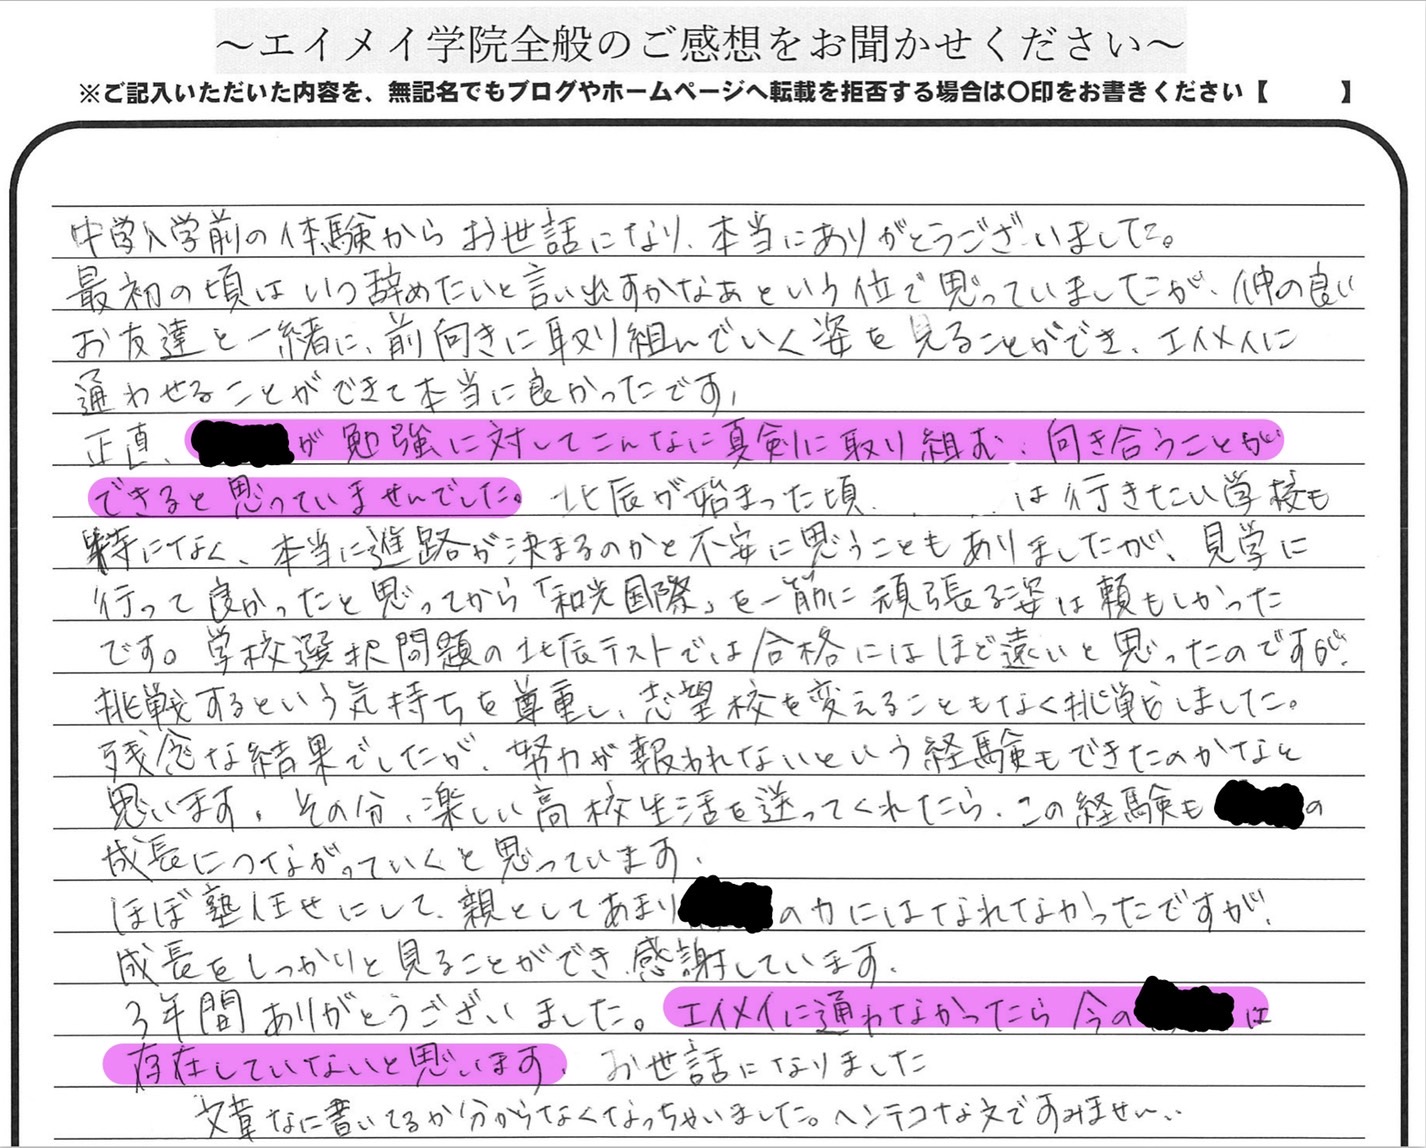 ～エイメイ学院全般のご感想をお聞かせください～
※ご記入いただいた内容を、無記名でもブログやホームページへ転載を拒否する場合は〇印をお書きください【　　　】
中学入学前の体験からお世話になり、本当にありがとうございました。
最初の頃はいつ辞めたいと言い出すかなあという位で思っていましたが、仲の良い
お友達と一緒に、前向きに取り組んでいく姿を見ることができ、エイメイに
通わせることができて本当に良かったです。
正直、が勉強に対してこんなに真剣に取り組む、向き合うことが
できると思っていませんでした。北辰が始まった頃、は行きたい学校も
特になく、本当に進路が決まるのかと不安に思うこともありましたが、見学に
行って良かったと思ってから「和光国際」を一筋に頑張る姿は頼もしかった
です。学校選択問題の北辰テストでは合格にはほど遠いと思ったのですが、
挑戦するという気持ちを尊重し、志望校を変えることもなく挑戦しました。
残念な結果でしたが、努力が報われないという経験もできたのかなと
思います。その分、楽しい高校生活を送ってくれたら、この経験もの
成長につながっていくと思っています。
ほぼ塾任せにして、親としてあまりの力にはなれてなかったですが、
成長をしっかりと見ることができ、感謝しています。
3年間ありがとうございました。エイメイに通わなかったら今のは
存在していないと思います。お世話になりました
文章なに書いてるか分からなくなっちゃいました。ヘンテコな文ですみません…